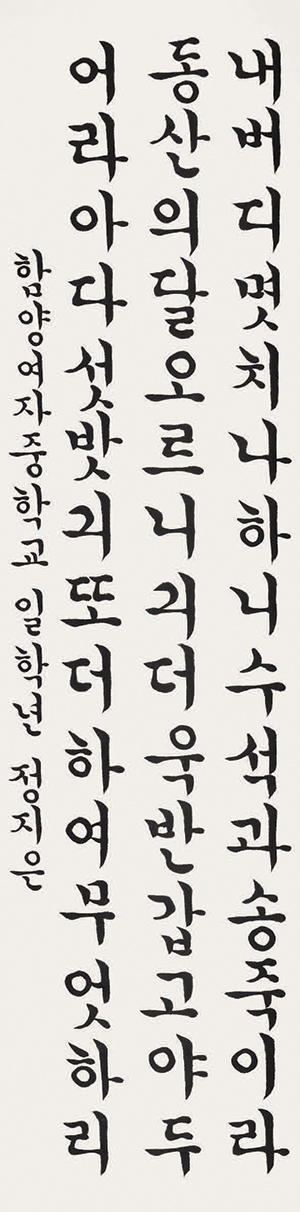 내버디몃치나하니수석과송죽이라
동산의달오르니긔더욱반갑고야두
어라아다섯밧긔또더하여무엇하리
함양여자중학교 일학년 정지은